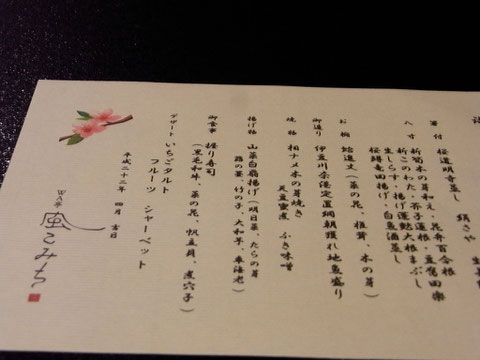 箸付 桜道明寺蒸し 絹さや
新筍木の芽和え・昆弁百合根
八寸 新このわた・芥子蓮根・豆腐田楽
生しらす・揚げ運鮑大根まぶし
桜鱒竜田揚げ・白魚酒蒸し
お椀 蛤進丈(菜の花、椎茸、木の芽)
御造り 伊豆川奈港定置網朝獲れ地魚盛り
焼物 相ナメ木の芽焼き ふき味噌
天豆蜜煮
揚げ物 山菜白扇揚げ(明日葉、たらの芽
蕗の薹、竹の子、大和芋、車海老)
御食事 握り寿司
(黒毛和牛、菜の花、帆立貝、煮穴子)
デザート いちごタルト
フルーツ シャーベット
平成二十二年 四月 吉日
WA亭
風こみち